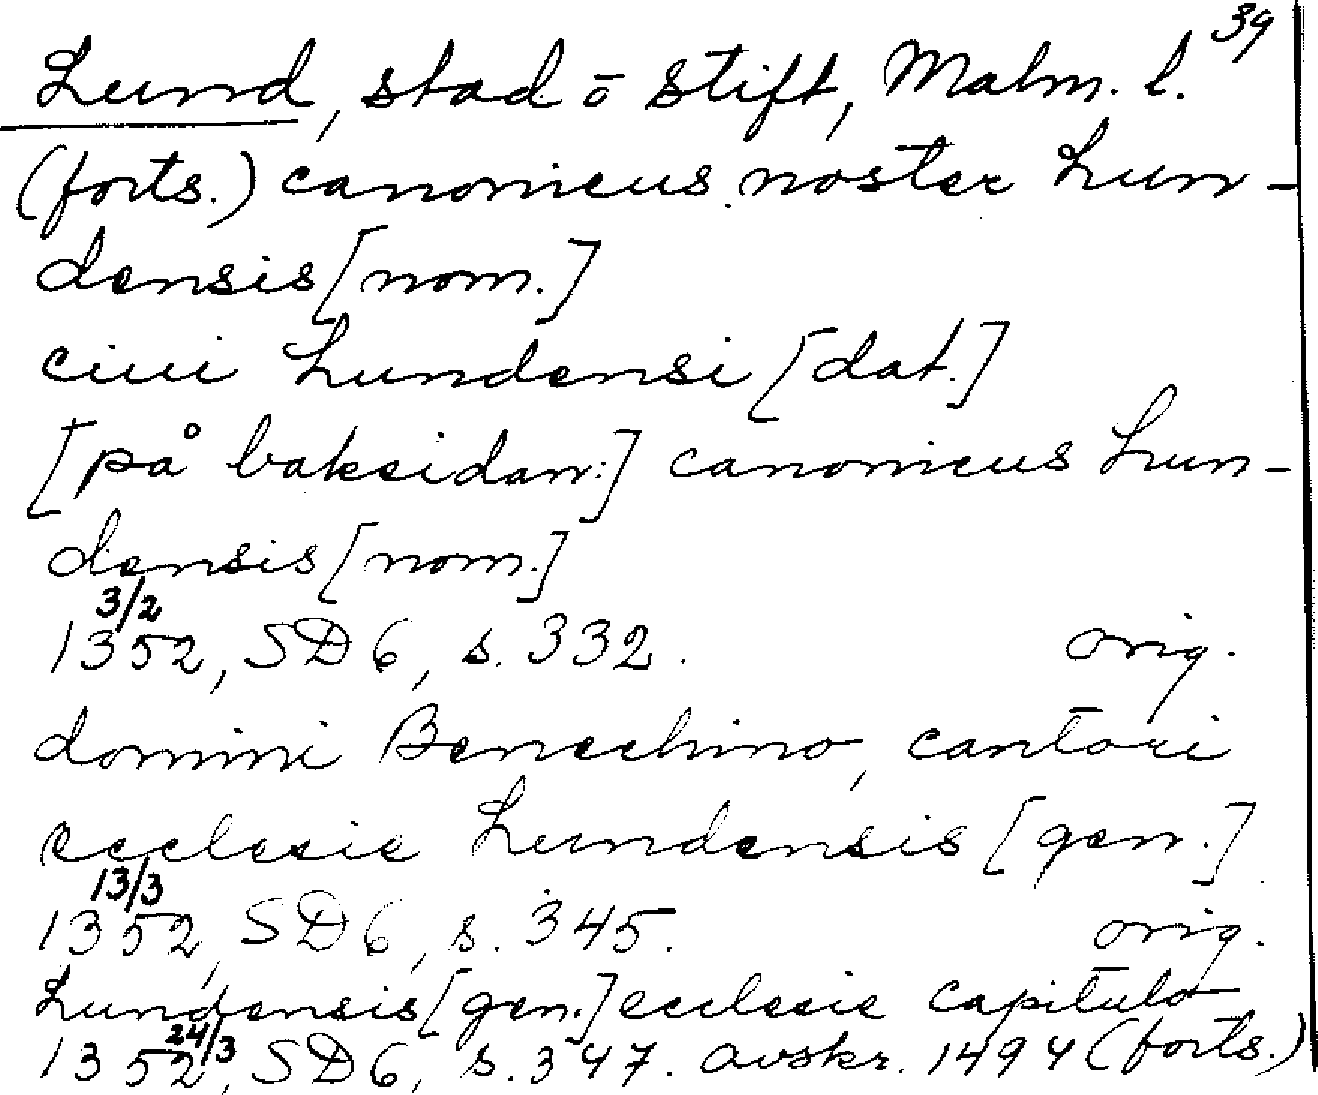 39
Lund, stad o stift, Malm. l.
(forts.) canonicus noster Lun-
densis [nom.]
ciui Lundensi [dat.]
[på baksidan:] canonicus Lun-
densis [nom.]
3/2
1352, SD 6, s. 332. orig.
domini Benechino, cantori
ecclesie Lundensis [gen.]
13/3
1352, SD 6, s. 345. orig.
Lundensis [gen.] ecclesie capitulo
24/3
1352, SD 6, s. 347. avskr. 1494 (forts.)